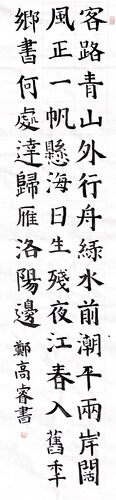 客路青山外行舟綠水前潮平兩岸闊
風正一帆懸海日生殘夜江春入舊年
鄉書何處達歸雁洛陽邊
鄭高睿書